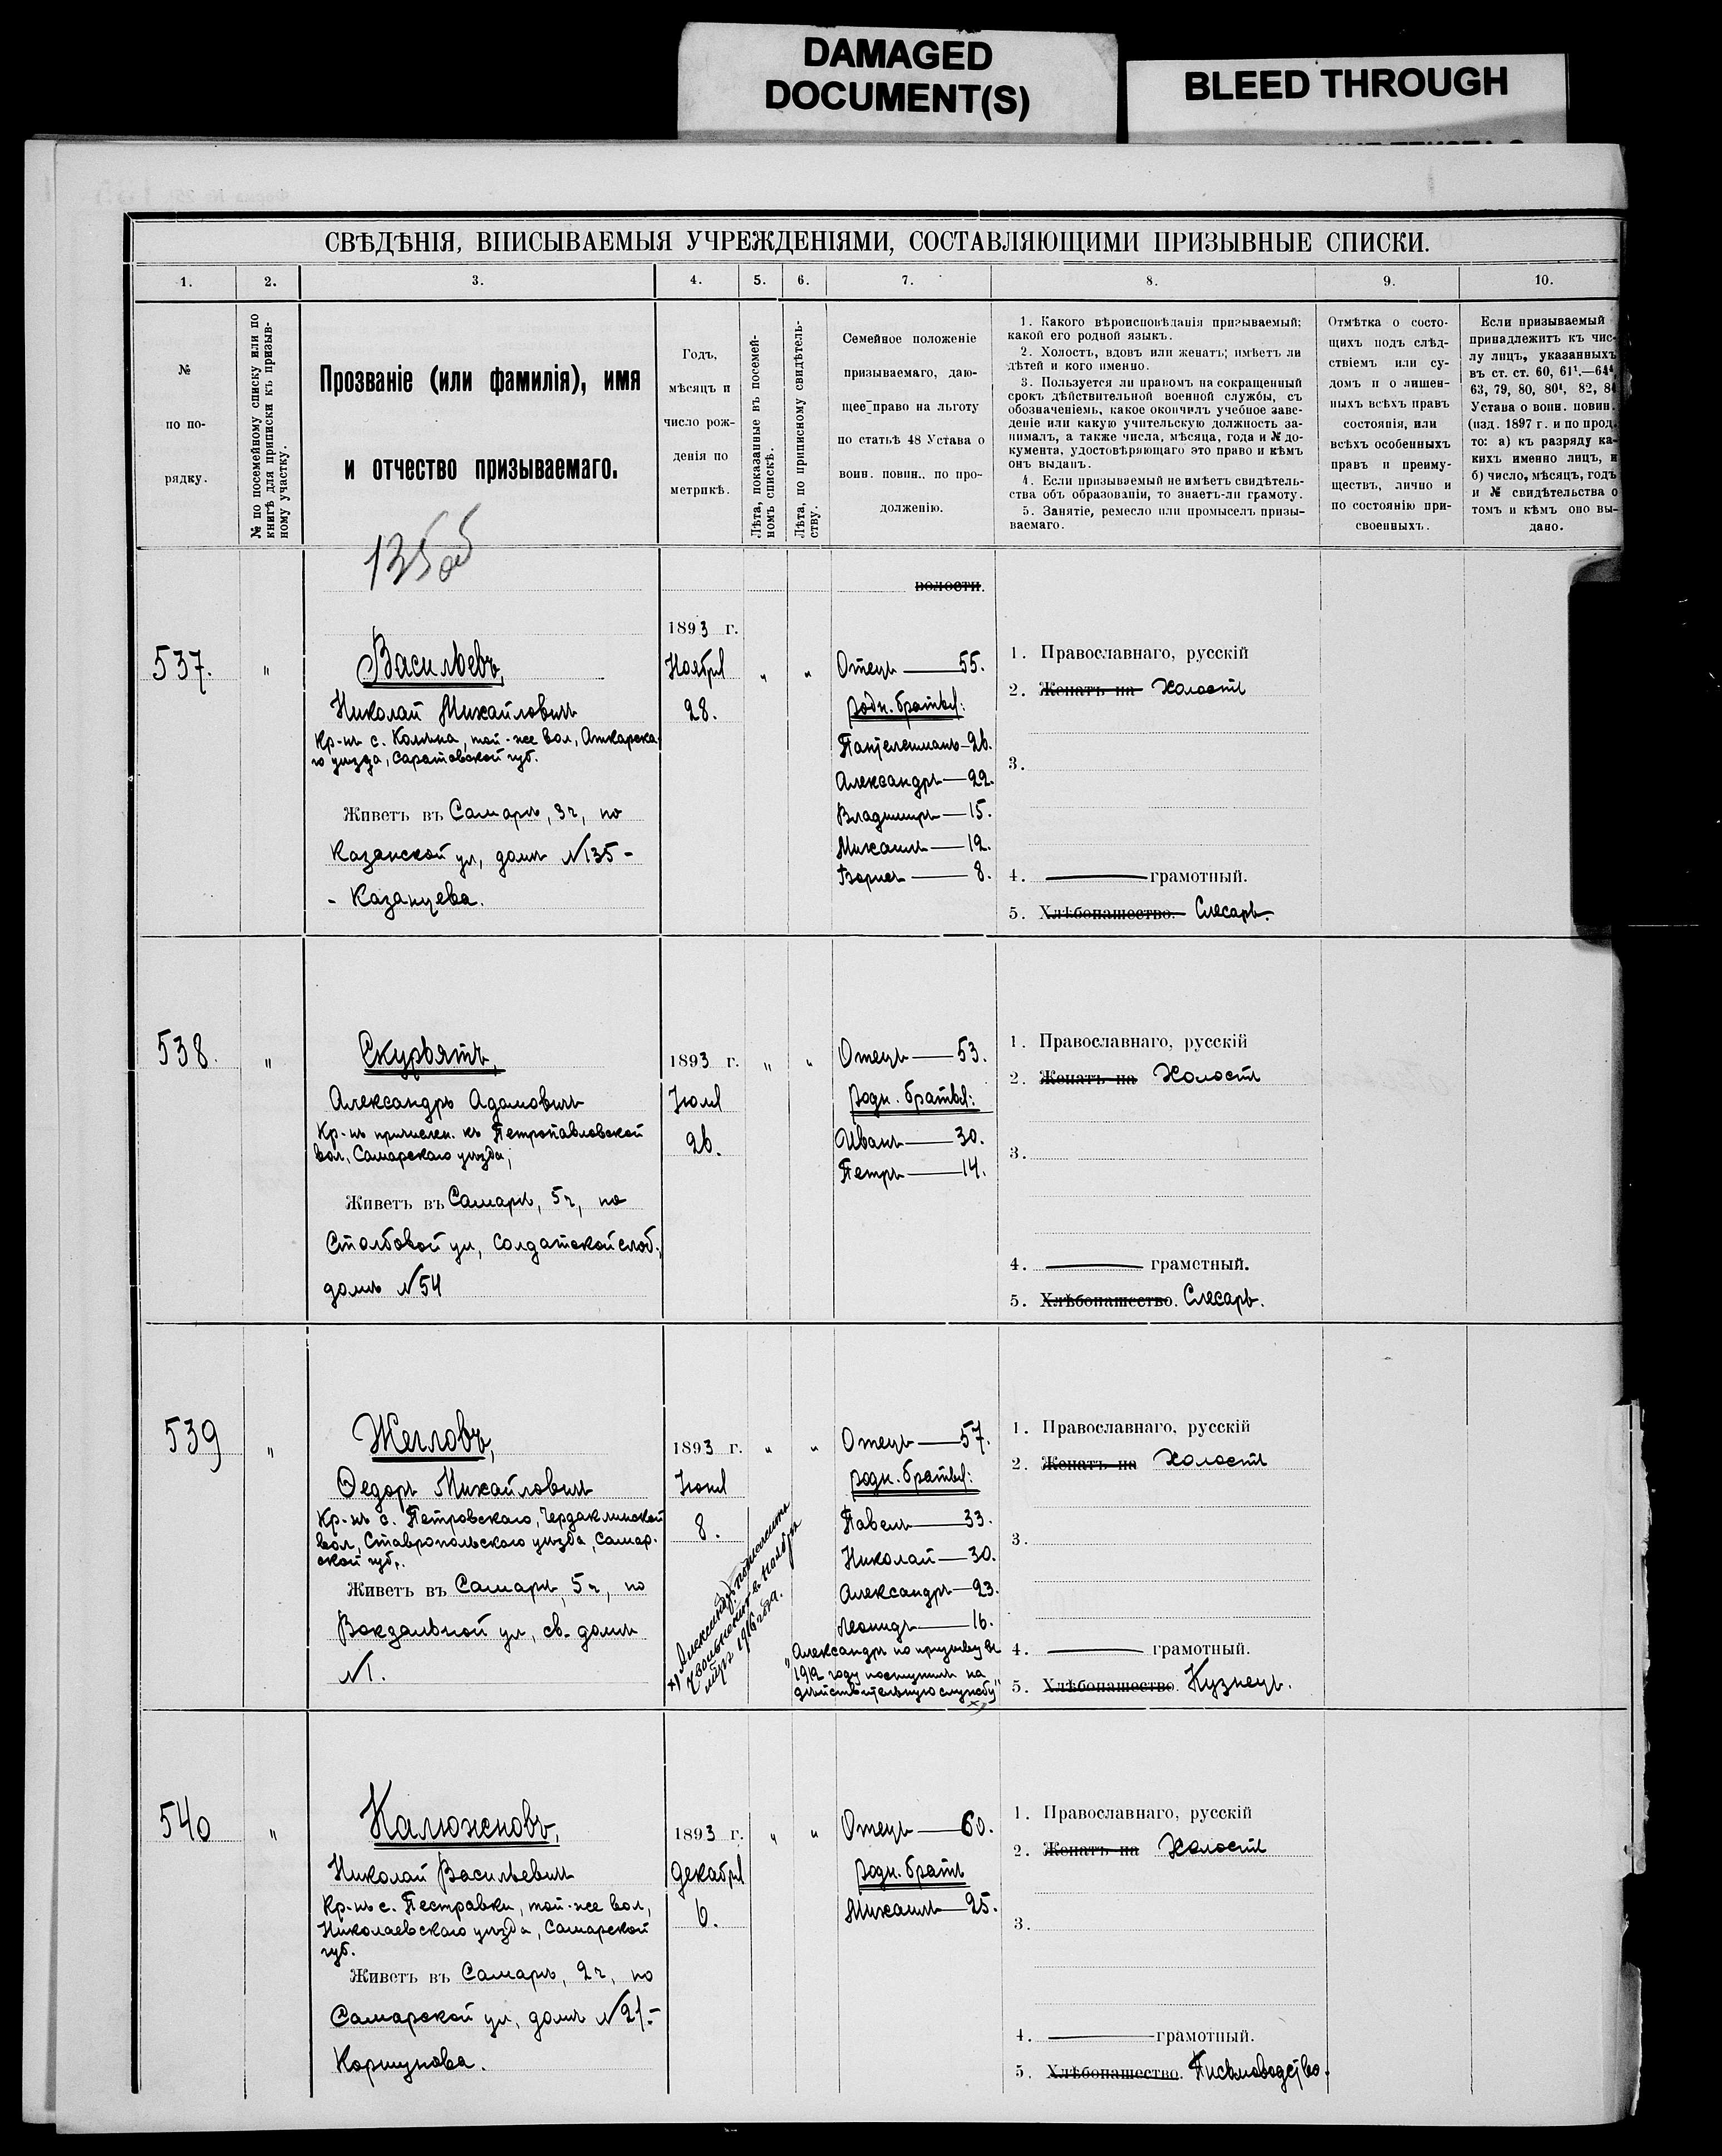 DAMAGED
DOCUMENT(S)
BLEED THROUGH
СВѢДѢНІЯ, ВПИСЫВАЕМЫЯ УЧРЕЖДЕНІЯМИ, СОСТАВЛЯЮЩИМИ ПРИЗЫВНЫЕ СПИСКИ.
1. 2. 3. 4. 5. 6. 7. 8. 9. 10.
№
по по-
рядку.
№ по посемейному списку или по
книгѣ для приписки къ призыв-
ному участку.
Прозваніе (или фамилія), имя
и отчество призываемаго.
Годъ,
мѣсяцъ и
число рож-
денія по
метрикѣ.
Лѣта, показанные въ посемей-
номъ спискѣ.
Лѣта, по приписному свидѣтель-
ству.
Семейное положеніе
призываемаго, даю-
щее право на льготу
по статьѣ 48 Устава о
воин. повин.. по про-
долженію.
1. Какого вѣроисповѣданія призываемый;
какой его родной языкъ.
2. Холостъ, вдовъ или женатъ; имѣетъ ли
дѣтей и кого именно.
3. Пользуется ли правомъ на сокращенный
срокъ дѣйствительной военной службы, съ
обозначеніемъ, какое окончилъ учебное заве-
деніе или какую учительскую должность за-
нималъ, а также числа, мѣсяца, года и № до-
кумента, удостовѣряющаго это право и кѣмъ
онъ выданъ.
4. Если призываемый не имѣетъ свидѣтель-
ства объ образованіи, то знаетъ-ли грамоту.
5. Занятіе, ремесло или промыселъ призы-
ваемаго.
Отмѣтка о состо-
щихъ подъ слѣд-
ствіемъ или су-
домъ и о лишен-
ныхъ всѣхъ правъ
состоянія, или
всѣхъ особенныхъ
правъ и преиму-
ществъ, лично и
по состоянію при-
своенныхъ.
Если призываемый
принадлежитъ къ чис-
лу лицъ, указанныхъ
въ ст. ст. 60, 61¹.—64⁴,
63, 79, 80, 80¹, 82, 84
Устава о воин. повин.
(изд. 1897 г. и по прод.
то: а) къ разряду ка-
кихъ именно лицъ, и
б) число, мѣсяцъ, годъ
и № свидѣтельства о
томъ и кѣмъ оно вы-
дано.
135об
волости.
537. "
Васильевъ,
Николай Михайловичъ
Кр-нъ с. Колѣна, той-же вол, Аткарска-
го уѣзда, Саратовской губ.
Живетъ въ Самарѣ, 3ч, по
Казанской ул, домъ №135-
- Казанцева.
1893 г.
Ноября
28.
" "
Отецъ — 55.
Родн. братья:
Пантелеимонъ-26.
Александръ — 22.
Владимиръ — 15.
Михаилъ — 12.
Борисъ — 8.
1. Православнаго, русскій
2. Женатъ на Холостъ
3.
4. грамотный.
5. Хлѣбопашество. Слесарь.
538. "
Скурвятъ,
Александръ Адамовичъ
Кр-нъ причислен. къ Петропавловской
вол, Самарскаго уѣзда,
Живетъ въ Самарѣ, 5ч, по
Столбовой ул, Солдатской слоб.,
домъ №54
1893 г.
Іюля
26.
" "
Отецъ — 53.
Родн. братья:
Иванъ — 30.
Петръ — 14.
1. Православнаго, русскій
2. Женатъ на Холостъ
3.
4. грамотный.
5. Хлѣбопашество. Слесарь.
539 "
Жегловъ,
Ѳедоръ Михайловичъ
Кр-нъ с. Петровскаго, Чердаклинской
вол, Ставропольскаго уѣзда, Самар-
ской губ.
Живетъ въ Самарѣ, 5ч, по
Вокзальной ул, св. домъ
№1.
1893 г.
Іюня
8.
" "
х) Александръ подлежитъ
увольненію въ ноябрѣ
мѣс. 1916 года.
Отецъ — 57.
Родн. братья:
Павелъ — 33.
Николай — 30.
Александръ — 23.
Леонидъ — 16.
"Александръ по призыву въ
1912 году поступилъ на
дѣйствительную службу"
х)
1. Православнаго, русскій
2. Женатъ на Холостъ
3.
4. грамотный.
5. Хлѣбопашество. Кузнецъ.
540 "
Калюженовъ,
Николай Васильевичъ
Кр-нъ с. Пестравки, той-же вол,
Николаевскаго уѣзда, Самарской
губ.
Живетъ въ Самарѣ, 2ч, по
Самарской ул, домъ №21.-
Коршунова.
1893 г.
Декабря
6.
" "
Отецъ — 60.
Родн. братъ
Михаилъ — 25.
1. Православнаго, русскій
2. Женатъ на Холостъ
3.
4. грамотный.
5. Хлѣбопашество. Письмоводство.